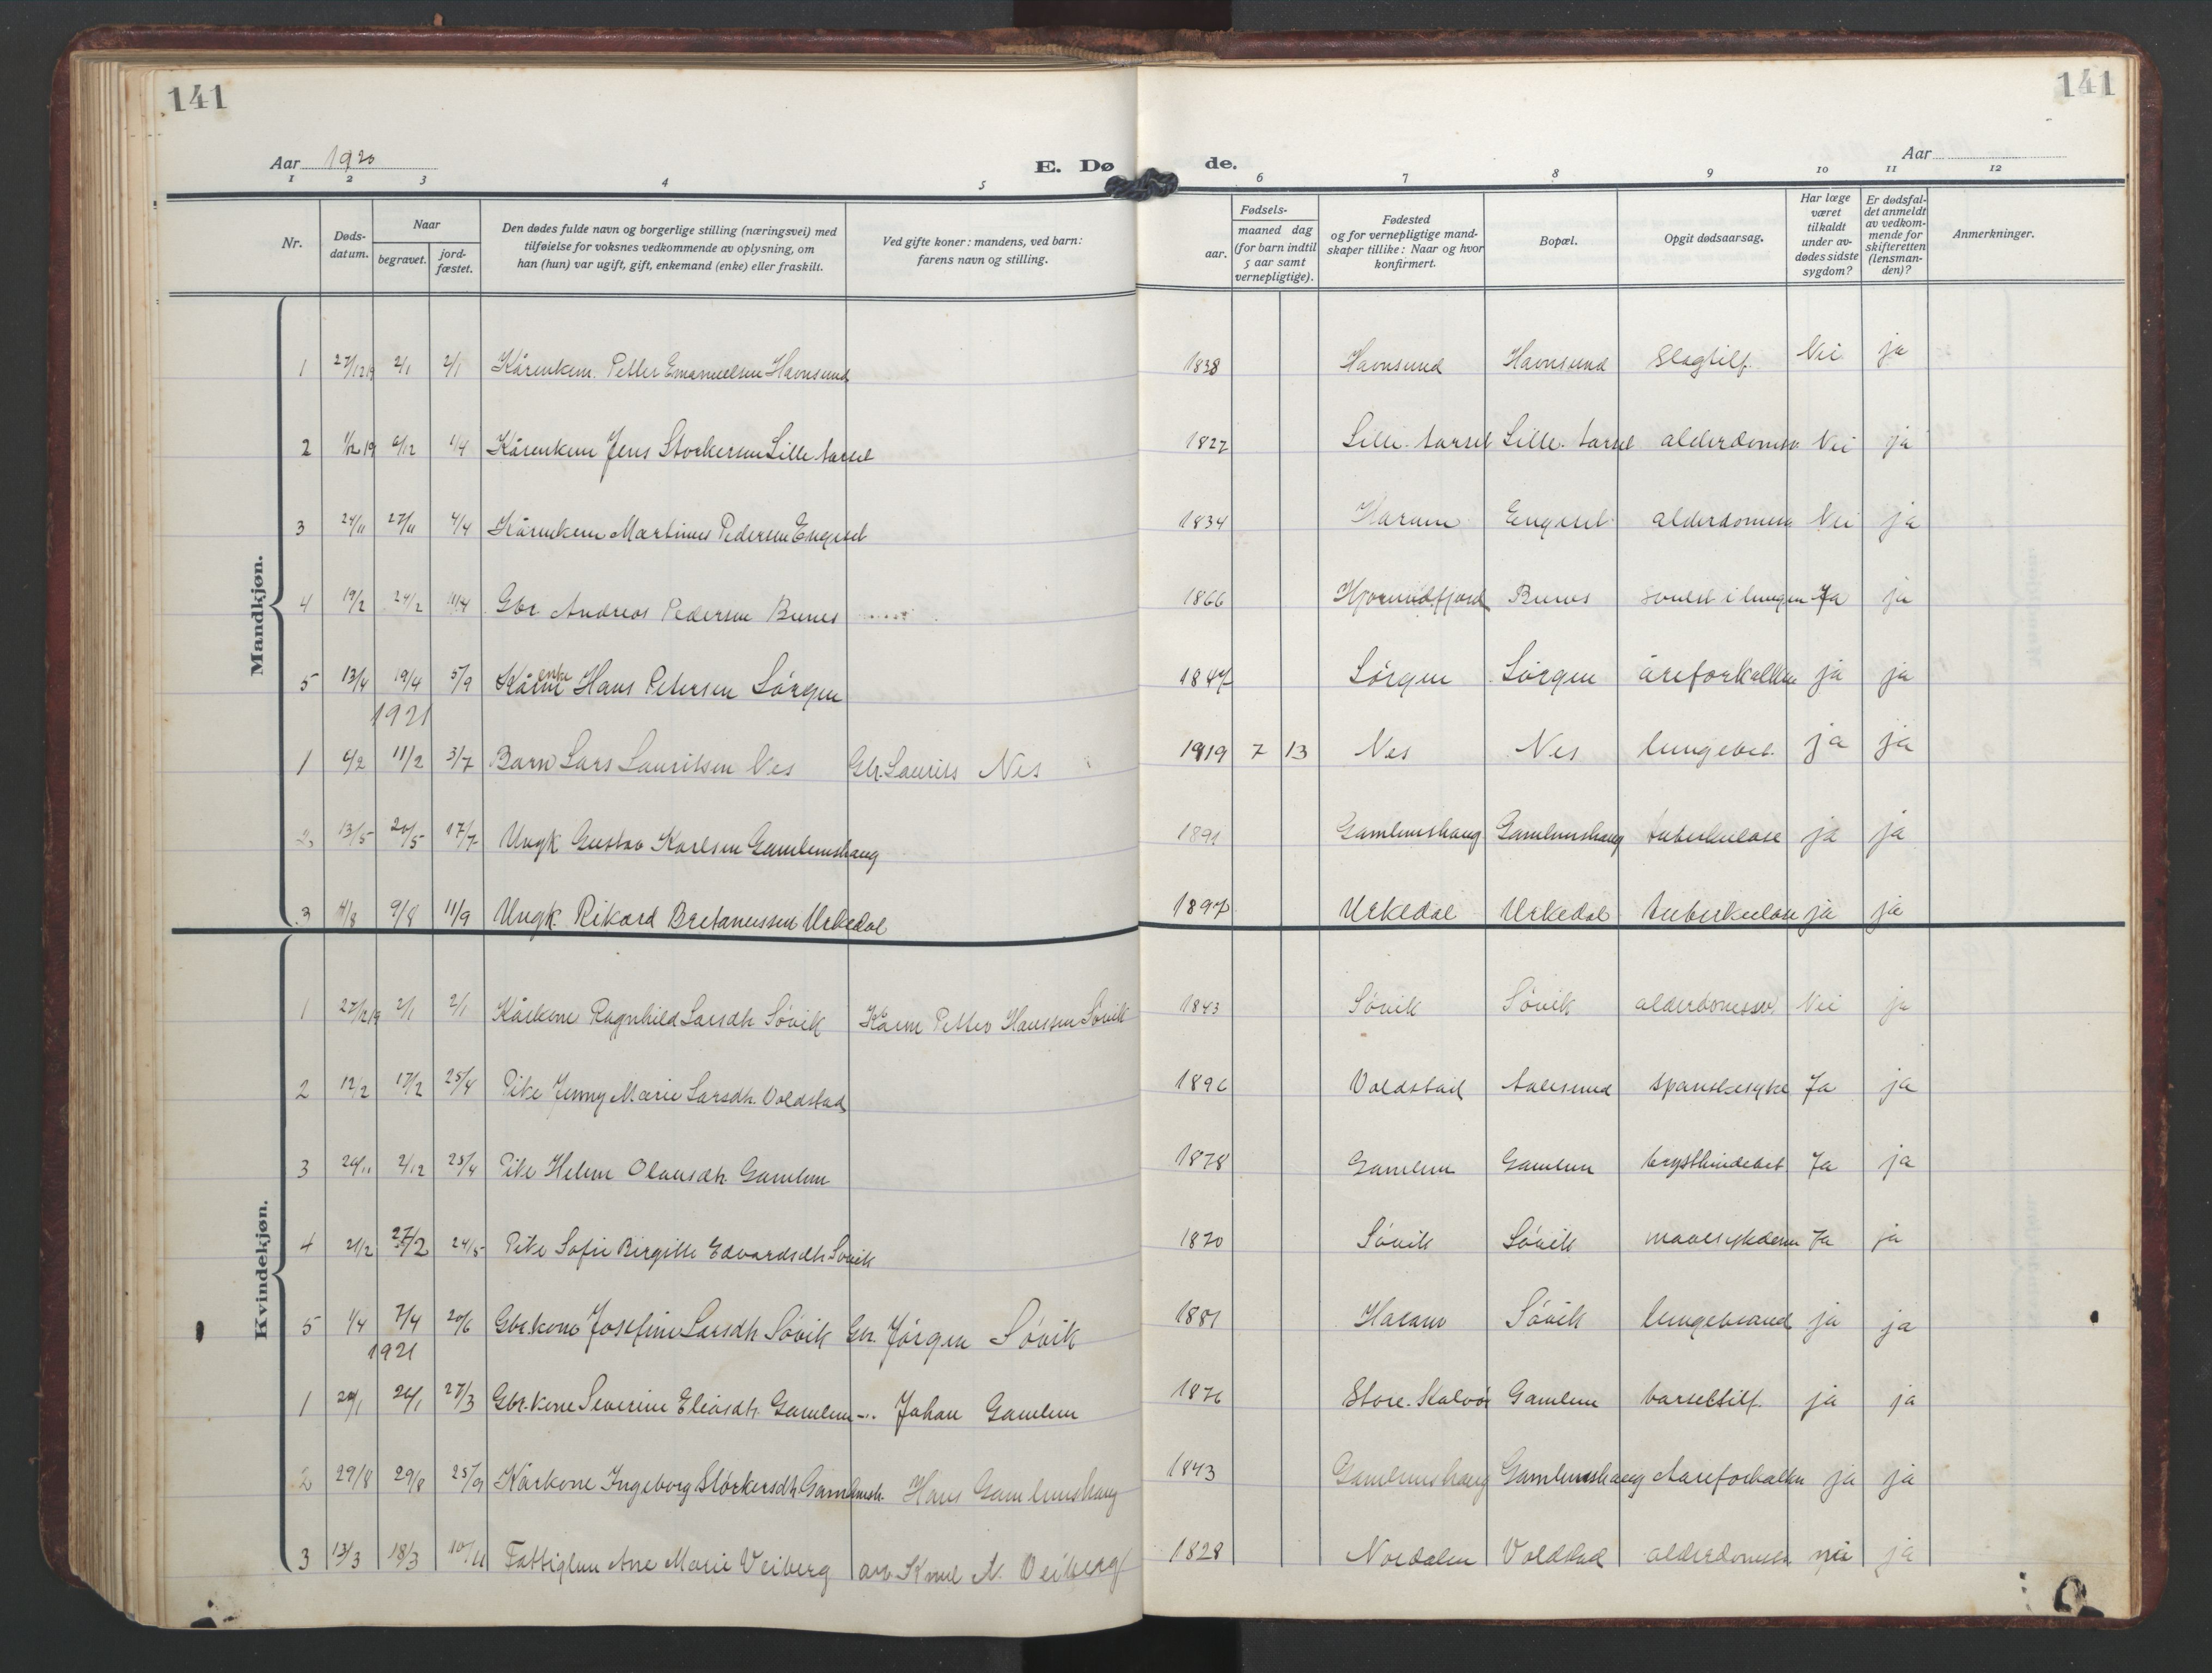 141
141
Aar 1920
E. Dø
de.
Aar
1 2 3 4 5 6 7 8 9 10 11 12
Nr.
Døds-datum.
Naar
begravet.
jord-fæstet.
Den dødes fulde navn og borgerlige stilling (næringsvei) med tilføielse for voksnes vedkommende av oplysning, om han (hun) var ugift, gift, enkemand (enke) eller fraskilt.
Ved gifte koner: mandens, ved barn: farens navn og stilling.
Fødsels-
aar.
maaned dag (for barn indtil 5 aar samt vernepligtige).
Fødested og for vernepligtige mand-skaper tillike: Naar og hvor konfirmert.
Bopæl.
Opgit dødsaarsag.
Har læge været tilkaldt under av-dødes sidste sygdom?
Er dødsfal-det anmeldt av vedkom-mende for skifteretten (lensman-den)?
Anmerkninger.
Mandkjøn.
1 27/12 19 2/1 2/1 Kårenkem. Petter Emanuelsen Havnsund 1838 Havnsund Havnsund Slagtilf. Nei ja
2 1/12 19 6/12 1/4 Kårenkem Jens Storkersen Lille-tarsel 1827 Lille-tarsel Lille-tarsel alderdomssv Nei ja
3 24/11 27/11 4/4 Kårenkem Martinus Pedersen Engeset 1834 Haram Engeset alderdomssv Nei ja
4 19/2 24/2 11/4 Gbr. Andreas Pedersen Bunes 1866 Hjørundfjord Bunes svulst i lungen Ja ja
5 13/4 19/4 5/9 Kårenke Hans Petersen Sørgen 1847 Sørgen Sørgen åreforkalkn ja ja
1921
1 6/2 11/2 3/7 Barn Lars Lauritsen Nes Gbr. Laurits Nes 1919 7 13 Nes Nes lungebet. ja ja
2 13/5 20/5 17/7 Ungk Gustav Karlsen Gamlemshaug 1891 Gamlemshaug Gamlemshaug tuberkulose ja ja
3 4/8 9/8 11/9 Ungk. Rikard Bretanussen Urkedal 1897 Urkedal Urkedal tuberkulose ja ja
Kvindekjøn.
1 27/12 19 2/1 2/1 Kårkone Ragnhild Larsdtr Søvik Kårm Petter Hanssen Søvik 1843 Søvik Søvik alderdomssv. Nei ja
2 12/2 17/2 25/4 Pike Jenny Marie Larsdtr. Voldstad 1896 Voldstad Aalesund spanskesyke Ja ja
3 26/11 2/12 25/4 Pike Helene Olausdtr. Gamlem 1878 Gamlem Gamlem brysthindebet Ja ja
4 21/2 27/2 24/5 Pike Sofie Birgitte Edvardsdtr Søvik 1870 Søvik Søvik mavesykdom Ja ja
5 1/4 7/4 20/6 Gbr.kone Josefine Larsdtr Søvik Gbr. Jørgen Søvik 1881 Haram Søvik lungebrand ja ja
1921
1 20/1 26/1 27/3 Gbr.kone Severine Eliasdtr. Gamlem -.. Johan Gamlem 1876 Store-Kalvøy Gamlem barseltilf. ja ja
2 29/8 29/8 25/9 Kårkone Ingeborg Størkersdtr. Gamlemsh. Hans Gamlemshaug 1843 Gamlemshaug Gamlemshaug Aareforkalkn ja ja
3 13/3 18/3 10/11 Fattiglem Ane Marie Veiberg arb. Knut N. Veiberg 1828 Nordalen Voldstad alderdomssv. nei ja